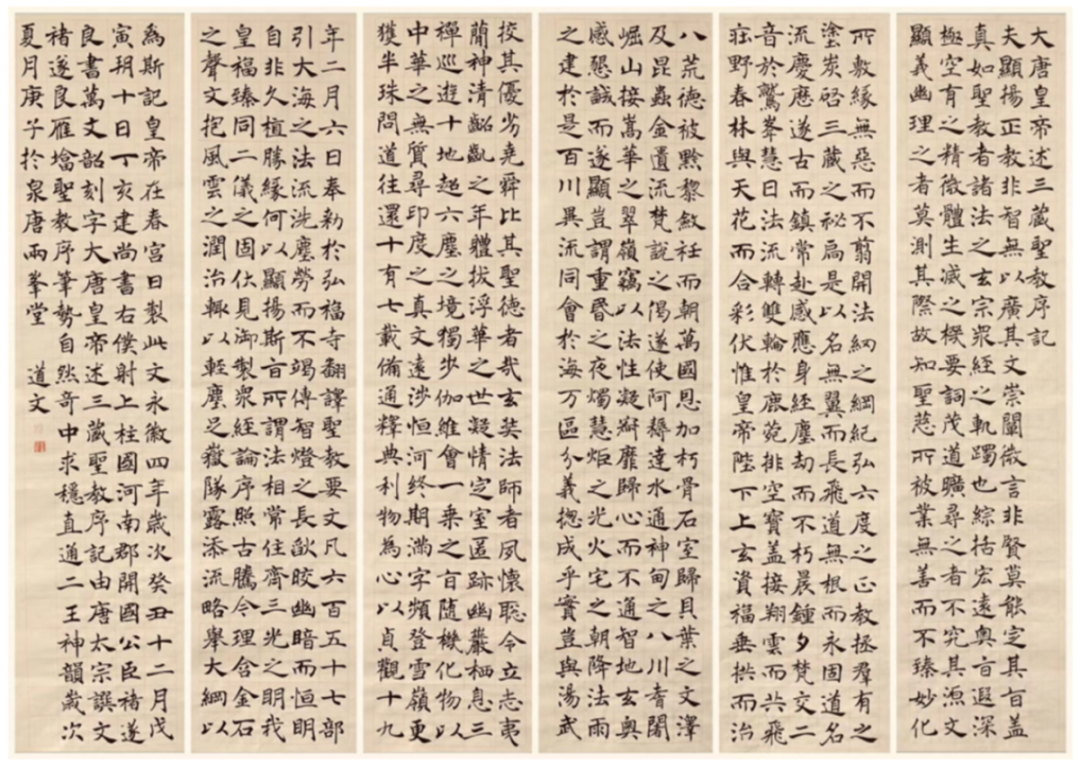 大唐皇帝述三藏聖教序記
夫顯揚正教非智無以廣其文崇闡微言非賢莫能定其旨蓋
真如聖教者諸法之玄宗眾經之軌躅也綜括宏遠奧旨遐深
極空有之精微體生滅之機要詞茂道曠尋之者不究其源文
顯義幽理之者莫測其際故知聖慈所被業無善而不臻妙化
所敷緣無惡而不翦開法網之綱紀弘六度之正教拯羣有之
塗炭啓三藏之秘扃是以名無翼而長飛道無根而永固道名
流慶歷遂古而鎮常赴感應身經塵劫而不朽晨鍾夕梵交二
音於鷲峯慧日法流轉雙輪於鹿菀排空寶蓋接翔雲而共飛
莊野春林與天花而合彩伏惟皇帝陛下上玄資福垂拱而治
八荒德被黔黎斂衽而朝萬國恩加朽骨石室歸貝葉之文澤
及昆蟲金匱流梵說之偈遂使阿耨達水通神甸之八川耆闍
崛山接嵩華之翠嶺竊以法性凝寂靡歸心而不通智地玄奧
感懇誠而遂顯豈謂重昏之夜燭慧炬之光火宅之朝降法雨
之建於是百川異流同會於海万區分義揔成乎實豈與湯武
挍其優劣堯舜比其聖德者哉玄奘法師者夙懷聡令立志夷
蘭神清齠齓之年體拔浮華之世凝情定室匿跡幽巖栖息三
禪巡遊十地超六塵之境獨步伽維會一乘之旨隨機化物以
中華之無質尋印度之真文遠涉恒河終期滿字頻登雪嶺更
獲半珠問道往還十有七載備通釋典利物為心以貞觀十九
年二月六日奉勑於弘福寺翻譯聖教要文凡六百五十七部
引大海之法流洗塵勞而不竭傳智燈之長焰皎幽暗而恒明
自非久植勝緣何以顯揚斯旨所謂法相常住齊三光之明我
皇福臻同二儀之固伏見御製眾經論序照古騰今理含金石
之聲文抱風雲之潤治輒以輕塵足嶽墜露添流略舉大綱以
為斯記皇帝在春宮日製此文永徽四年歲次癸丑十二月戊
寅朔十日丁亥建尚書右僕射上柱國河南郡開國公臣褚遂
良書萬文韶刻字大唐皇帝述三藏聖教序記由唐太宗譔文
褚遂良雁塔聖教序筆勢自然奇中求穩直追二王神韻歲次
夏月庚子於泉唐兩峯堂 道文